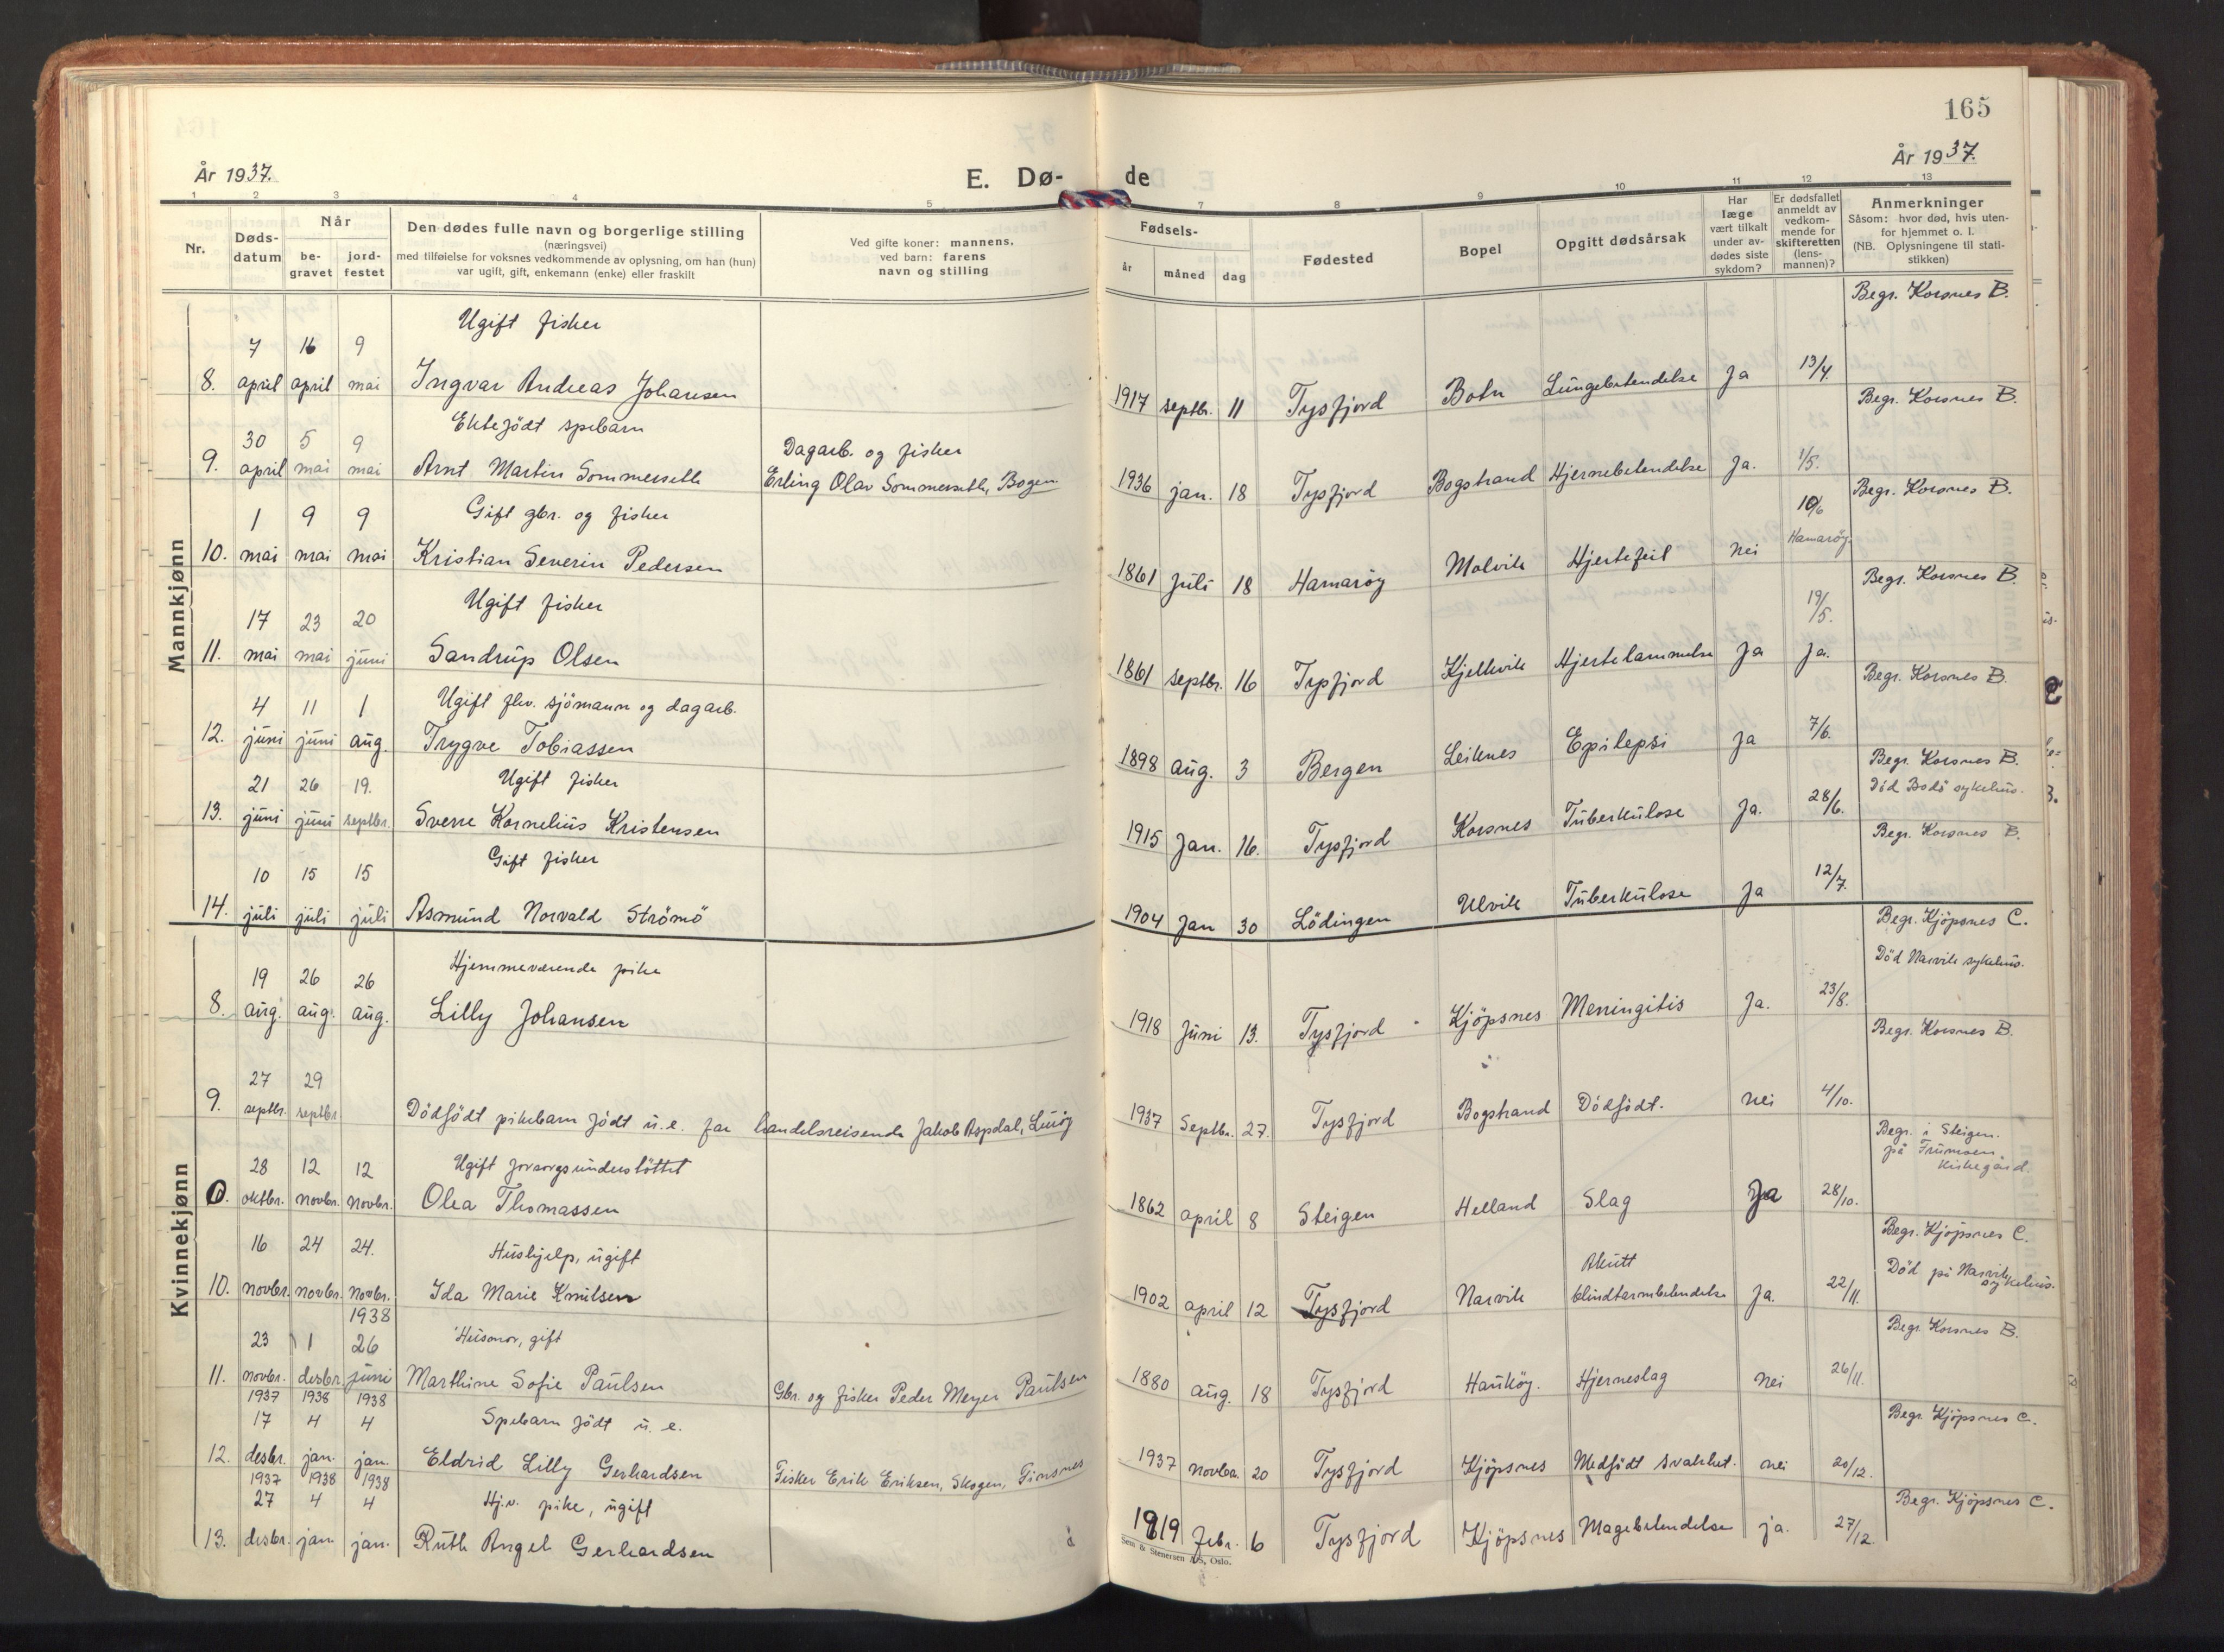 165
År 1937.
E. Dø-
de
År 1937.
1 2 3 4 5 7 8 9 10 11 12 13
Nr.
Døds-
datum
Når
be-
gravet
jord-
festet
Den dødes fulle navn og borgerlige stilling
(næringsvei)
med tilføielse for voksnes vedkommende av oplysning, om han (hun)
var ugift, gift, enkemann (enke) eller fraskilt
Ved gifte koner: mannens.
ved barn: farens
navn og stilling
Fødsels-
år
måned
dag
Fødested
Bopel
Opgitt dødsårsak
Har
læge
vært tilkalt
under av-
dødes siste
sykdom?
Er dødsfallet
anmeldt av
vedkom-
mende for
skifteretten
(lens-
mannen)?
Anmerkninger
Såsom: hvor død, hvis uten-
for hjemmet o. l.
(NB. Oplysningene til stati-
stikken)
Mannkjønn
Ugift fisker Begr. Korsnes B.
7 16 9
8. april april mai Ingvar Andreas Johansen 1917 septbr. 11 Tysfjord Botn Lungebetendelse Ja 13/4.
Ektefödt spebarn Begr. Korsnes B.
30 5 9 Dagarb. og fisker
9. april mai mai Arnt Martin Sommerseth Erling Olav Sommerseth, Bogen. 1936 jan. 18 Tysfjord Bogstrand Hjernebetendelse Ja. 1/5.
1 9 9 Gift gbr. og fisker 10/6 Begr. Korsnes B.
10. mai mai mai Kristian Severin Pedersen 1861 juli 18 Hamaröy Molvik Hjertefeil nei Hamaröy.
17 23 20 Ugift fisker 19/5. Begr. Korsnes B.
11. mai mai juni Sandrup Olsen 1861 septbr. 16 Tysfjord Kjelkvik Hjertelammelse Ja Ja.
4 11 1 Ugift fhv. sjömann og dagarb. Begr. Korsnes B.
12. juni juni aug. Trygve Tobiassen 1898 aug. 3 Bergen Leiknes Epilepsi Ja 7/6.
21 26 19. Ugift fisker Begr. Korsnes B.
Död Bodö sykehus.
13. juni juni septbr. Sverre Kornelius Kristensen 1915 Jan. 16. Tysfjord Korsnes Tuberkulose Ja. 28/6.
10 15 15 Gift fisker Begr. Korsnes B.
14. juli juli juli Asmund Norvald Strömö 1904 Jan 30 Lödingen Ulvik Tuberkulose Ja 12/7.
Kvinnekjønn
19 26 26 Hjemmeværende pike Begr. Kjöpsnes C.
Död Narvik sykehus.
8. aug. aug. aug. Lilly Johansen 1918 Juni 13. Tysfjord Kjöpsnes Meningitis Ja. 23/8.
27 29 Begr. Korsnes B.
9. septbr. septbr. Dödfödt pikebarn födt u.e. far handelsreisende Jakob Aspdal, 1937 Septbr. 27. Tysfjord Bogstrand Dödfödt. nei 4/10.
28 12 12 Ugift forsorgsunderstöttet Begr. i Steigen.
på
Kirkegård.
oktbr. novbr. novbr. Olea Thomassen 1862 april 8 Steigen Helland Slag Ja 28/10.
16 24 24. Hushjelp, ugift Akutt Begr. Kjöpsnes C.
Död på Narvik
sykehus.
10. novbr. novbr. novbr. Ida Marie Knutsen 1902 april 12 Tysfjord Narvik blindtarmbetendelse Ja. 22/11.
1938
23 1 26 Husmor, gift Begr. Korsnes B.
11. novbr. desbr. juni Marthine Sofie Paulsen Gbr. og fisker Peder Meyer Paulsen 1880 aug. 18 Tysfjord Hauköy. Hjerneslag nei 26/11.
1937 1938 1938
17 4 4 Spebarn födt u. e. Begr. Kjöpsnes C.
12. desbr. jan. jan. Eldrid Lilly Gerhardsen Fisker Erik Eriksen, Skogen, 1937 novbr. 20 Tysfjord Kjöpsnes Medfödt svakhet. nei 20/12.
1937 1938 1938
27 4 4 Hj.v. pike, ugift Begr. Kjöpsnes C.
13. desbr. jan. jan. Ruth Angel Gerhardsen 1919 febr. 6 Tysfjord Kjöpsnes Magebetendelse ja. 27/12
Sem & Stenersen A/S, Oslo.